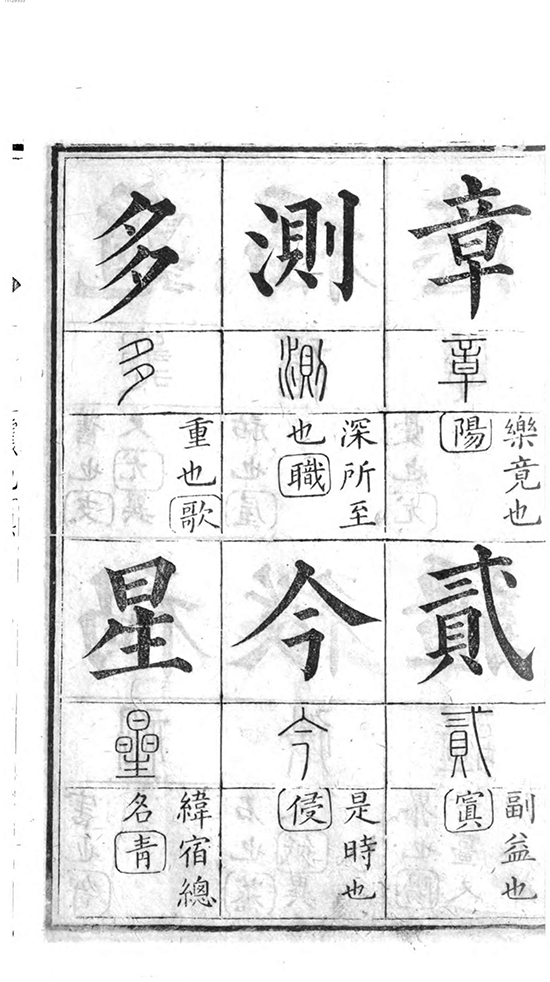 章
章
樂竟也
陽
貳
貳
副益也
寘
測
測
深所至
也職
今
今
是時也
侵
多
多
重也歌
星
曐
緯宿總
名青